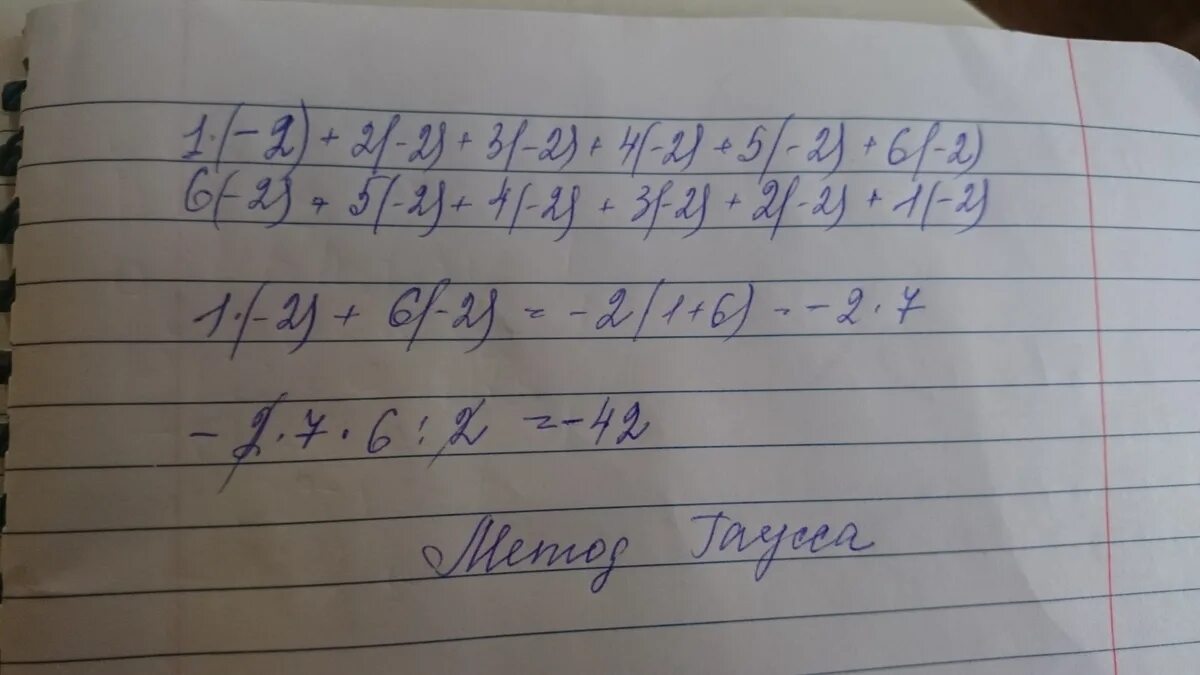 1·(-2) + 2(-2) + 3(-2) + 4(-2) + 5(-2) + 6(-2)
6(-2) + 5(-2) + 4(-2) + 3(-2) + 2(-2) + 1(-2)
1·(-2) + 6(-2) = -2(1+6) = -2·7
-2·7·6:2 = -42
Метод Гаусса